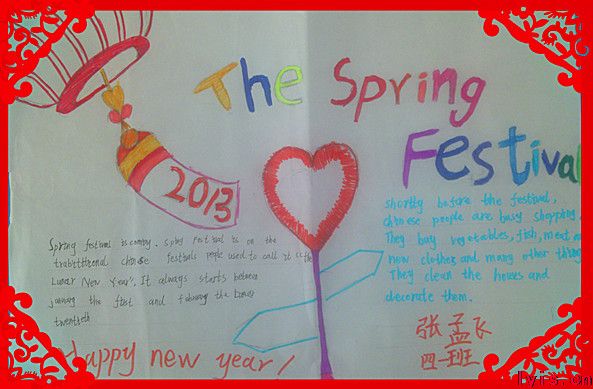 The Spring
Festival
2013
Spring festival is coming. Spring Festival is on the
traditional chinese festivals people used to call it
Lunar New Year. It always starts between
january the first and
twentieth
shortly before the festival,
chinese people are busy shopping.
They buy vegetables, fish, meat,
new clothes and many other things
They clean the houses and
decorate them.
Happy new year!
张孟飞
四一班